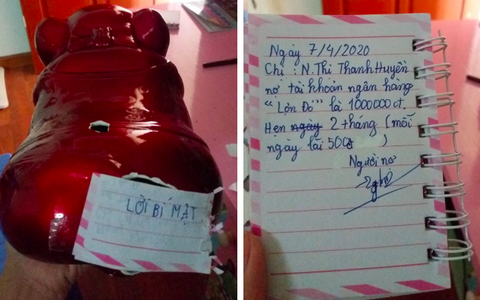 LỜI BÍ MẬT
Ngày 7/4/2020
Chị : N.Thị Thanh Huyền
nợ tài khoản ngân hàng
"Lợn Đỏ" là 1000000 đ.
Hẹn ngày 2 tháng (mỗi
ngày lãi 500đ )
Người nợ